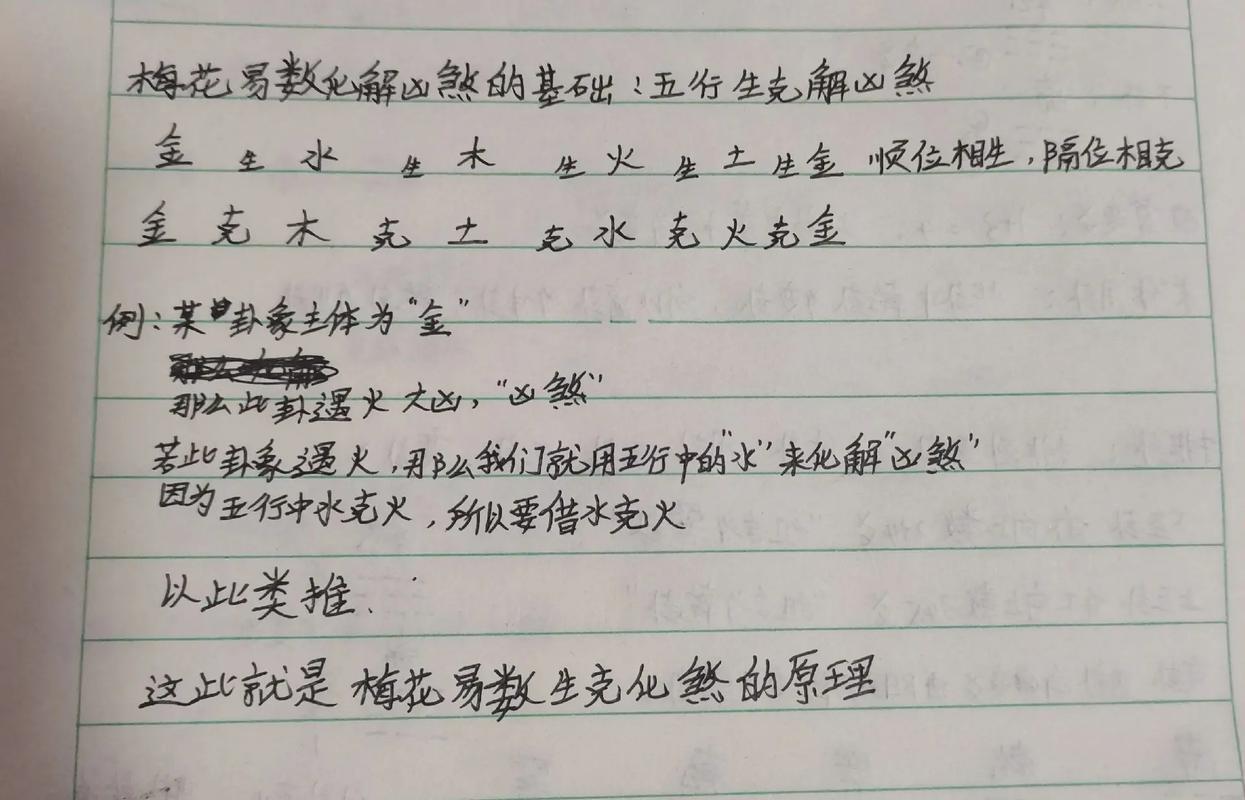 梅花易数化解凶煞的基础：五行生克解凶煞
金生水生木生火生土生金 顺位相生，隔位相克
金克木克土克水克火克金
例：某卦象主体为“金”
那么此卦遇火大凶，“凶煞”
若此卦象遇火，那么我们就用五行中的“水”来化解“凶煞”
因为五行中水克火，所以要借水克火
以此类推．
这此就是梅花易数生克化煞的原理